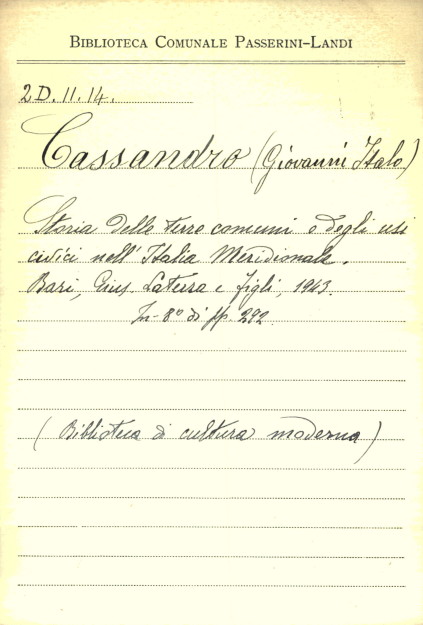 BIBLIOTECA COMUNALE PASSERINI-LANDI
2D.11.14.
Cassandro (Giovanni Italo)
Storia delle terre comuni e degli usi
civici nell'Italia Meridionale.
Bari, Gius. Laterza e figli, 1943.
In-8° di pp. 292.
(Biblioteca di cultura moderna)